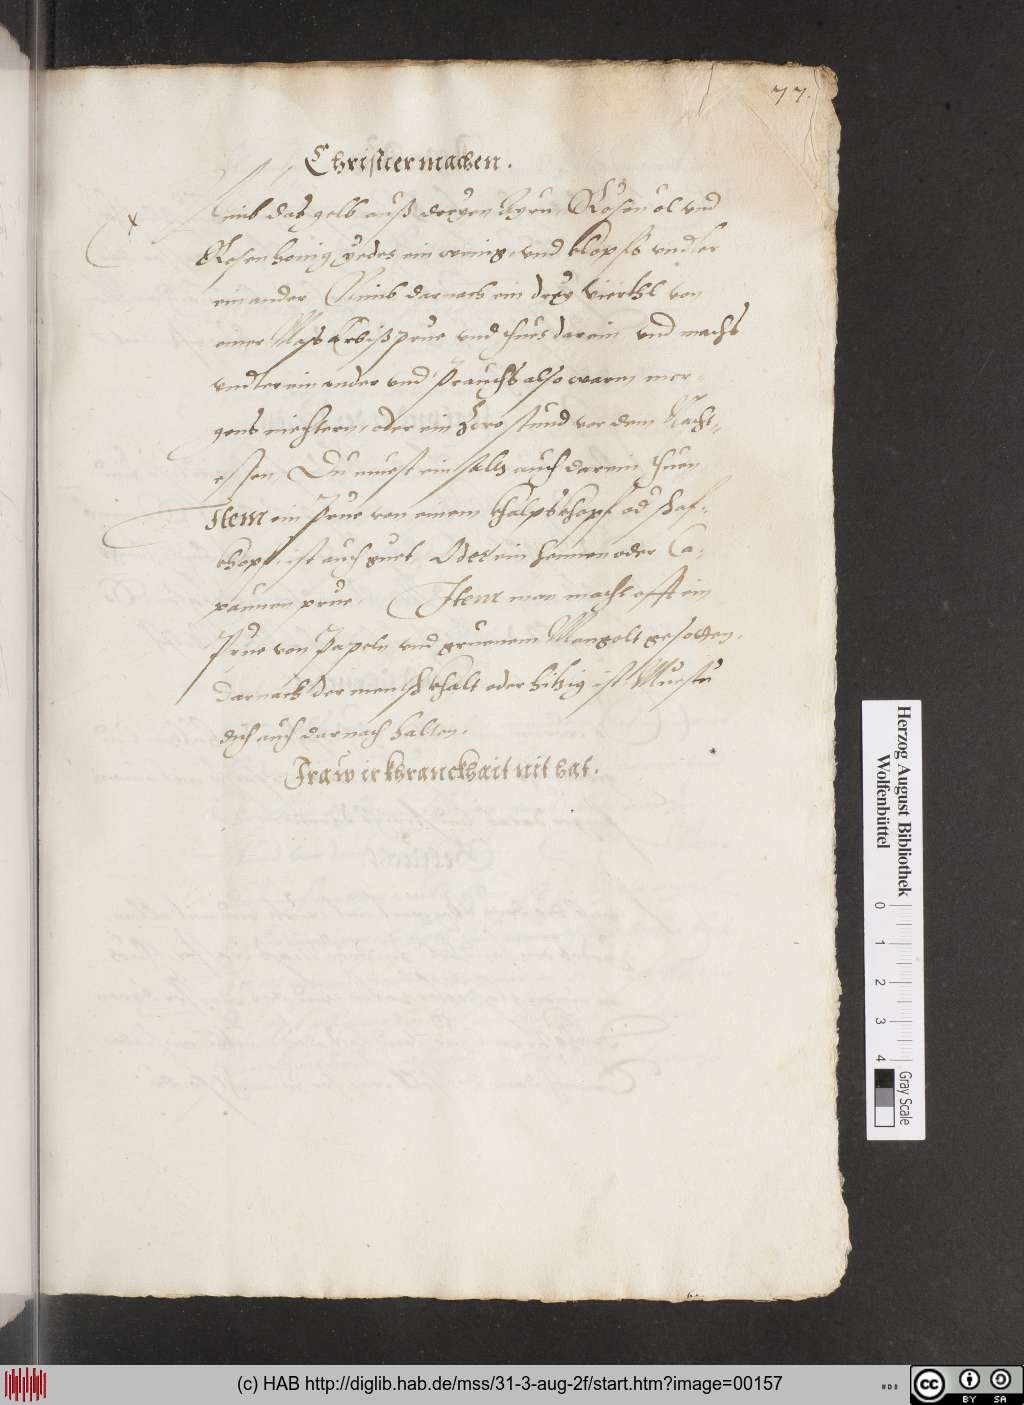 77.
Christier machen.
Nimb das gelb auß dreyen Ayrn, Rosenöl vnd
Rosenhönig yedes ein wenig, vnd klopfs vndter
einander Nimb darnach ein drey Viertl von
einer Mass Arbißprue vnd thues darein vnd machs
vndtereinander vnd prauchs also warm mor-
gens niechtern, oder ein zwo stund vor dem Nacht-
essen, Du muest ein saltz auch darein thuen
Item ein Prue von einem khalpskhopf od schaf-
khopf, ist auch guet, Oder ein hennen oder Ca-
paunen prue. Item man macht offt ein
Prue von Papeln vnd gruenem Mangolt gesotten,
Darnach der mensch khalt oder hitzig ist Muestu
dich auch darnach halten.
Fraw ir khranckhait nit hat.
Herzog August Bibliothek
Wolfenbüttel
0 1 2 3 4
Gray Scale
(c) HAB http://diglib.hab.de/mss/31-3-aug-2f/start.htm?image=00157
cc BY SA